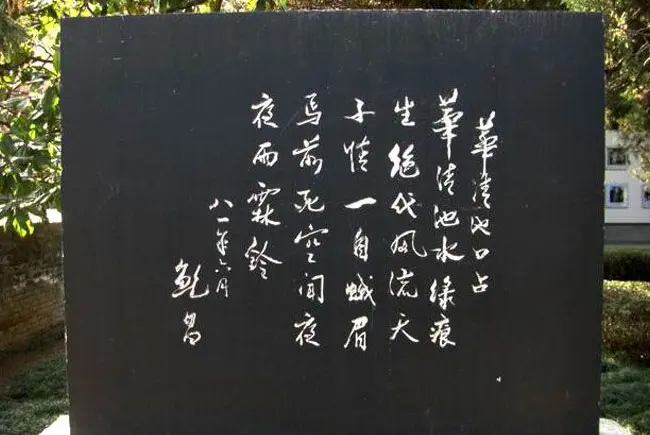 華清池口占
華清池水綠痕
生絕代風流天
子情一自蛾眉
馬前死空聞夜
夜雨霖鈴
八一年六月
鮑昌